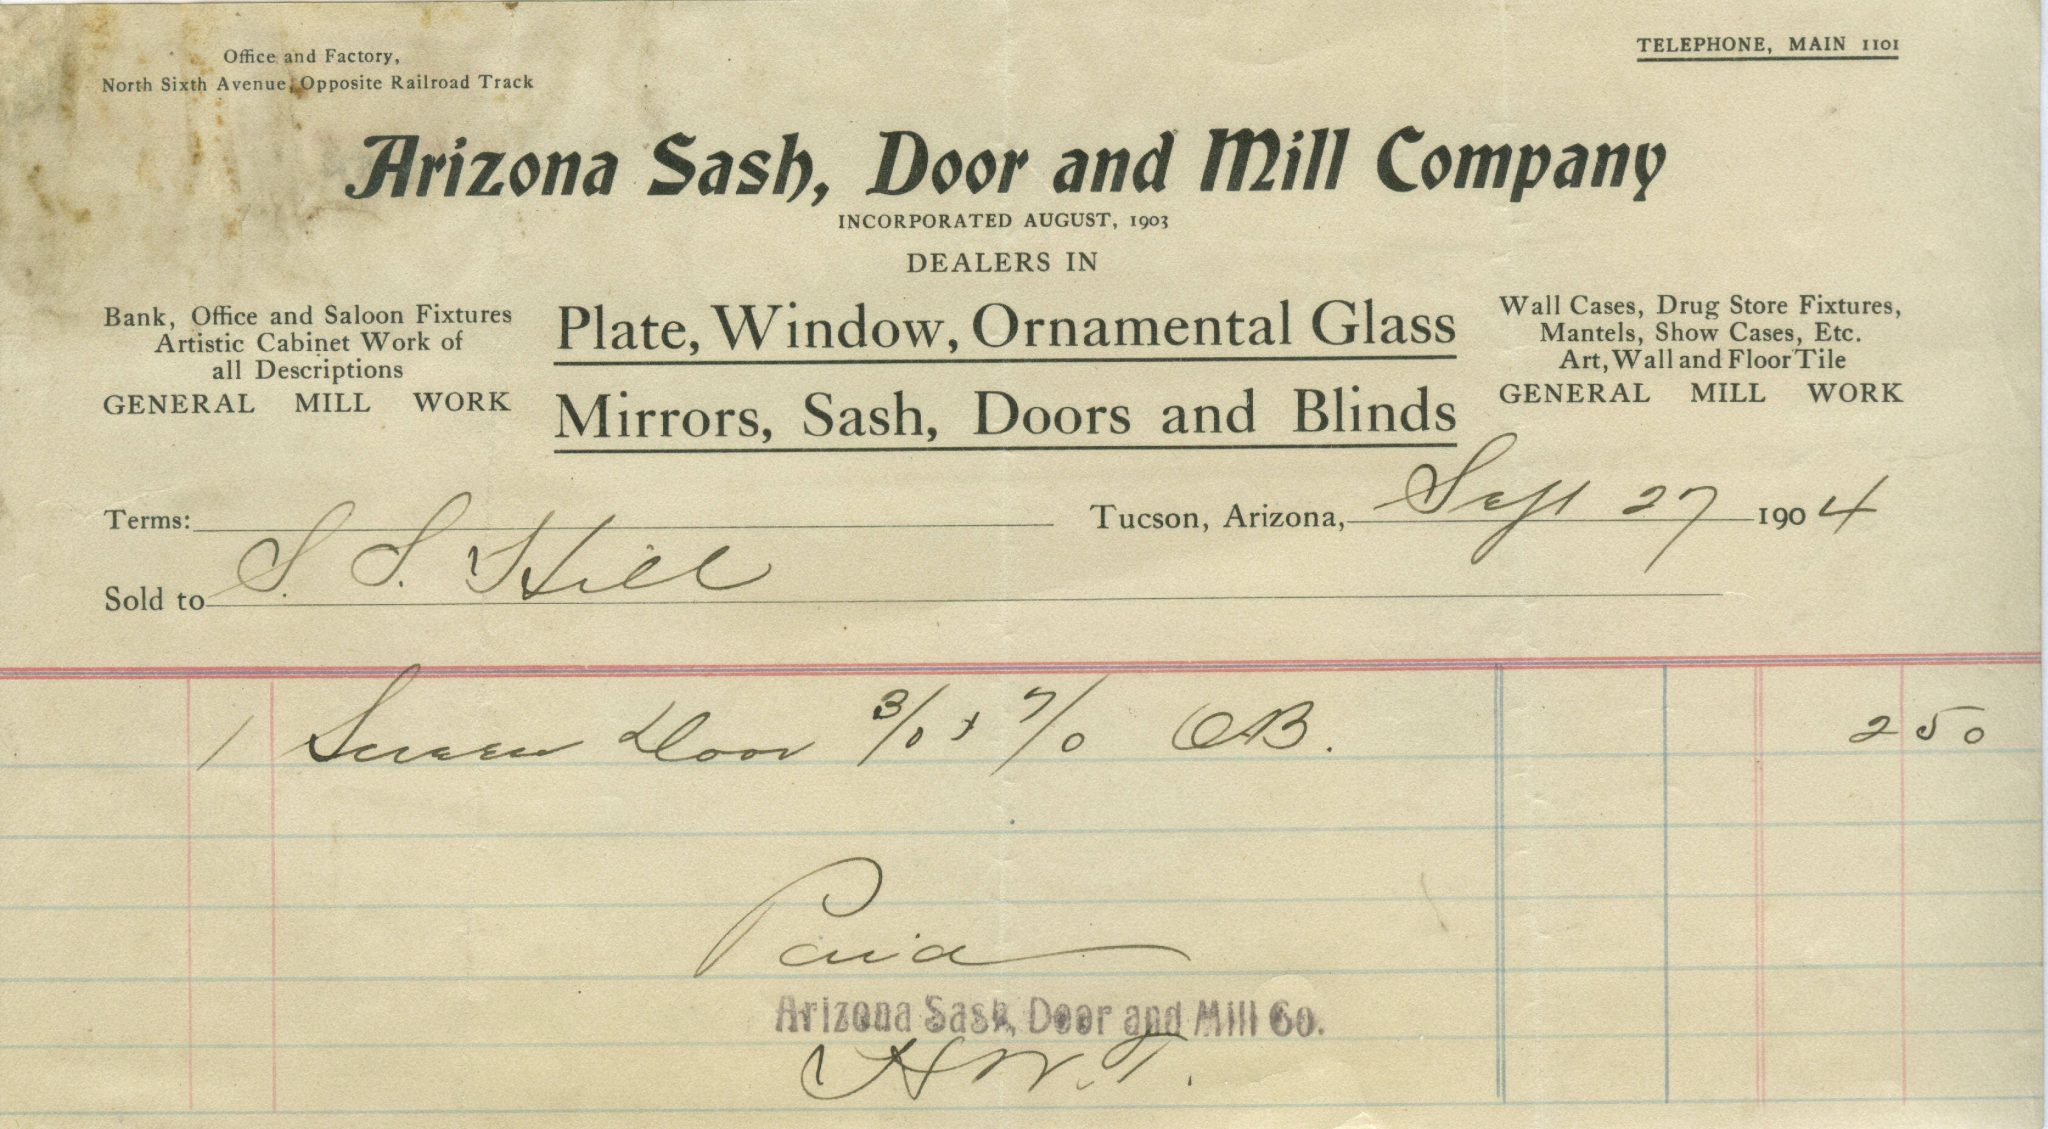 Office and Factory,
North Sixth Avenue, Opposite Railroad Track
TELEPHONE, MAIN 1101
Arizona Sash, Door and Mill Company
INCORPORATED AUGUST, 1903
DEALERS IN
Bank, Office and Saloon Fixtures
Artistic Cabinet Work of
all Descriptions
GENERAL MILL WORK
Plate, Window, Ornamental Glass
Mirrors, Sash, Doors and Blinds
Wall Cases, Drug Store Fixtures,
Mantels, Show Cases, Etc.
Art, Wall and Floor Tile
GENERAL MILL WORK
Terms: Tucson, Arizona, Sept 27 1904
Sold to S. S. Hill
1 Screen Door 3/0 x 7/0 OB. 2 50
Paid
Arizona Sash, Door and Mill Co.
H W. T.